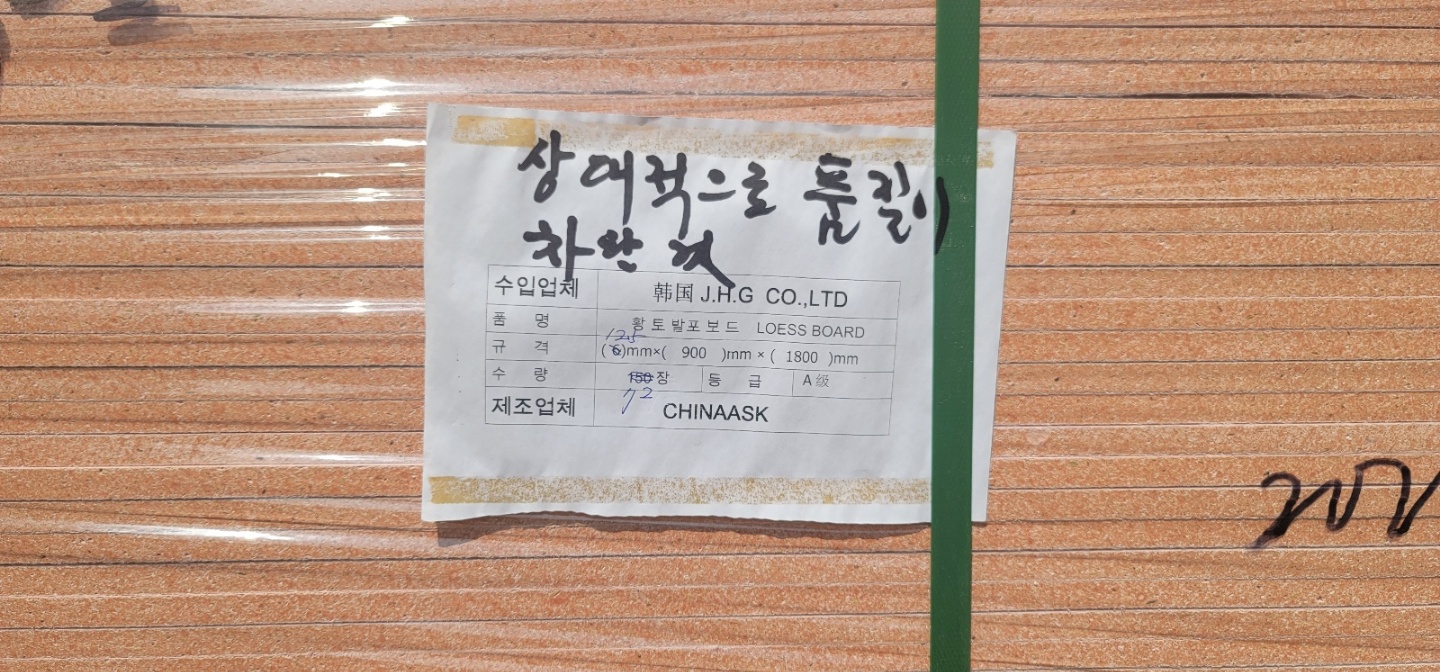 상대적으로 품질이
차한 것
수입업체 韩国 J.H.G CO.,LTD
품 명 황토발포보드 LOESS BOARD
12.5
규 격 (6)mm×( 900 )mm × ( 1800 )mm
수 량 150장 등 급 A级
72
제조업체 CHINAASK